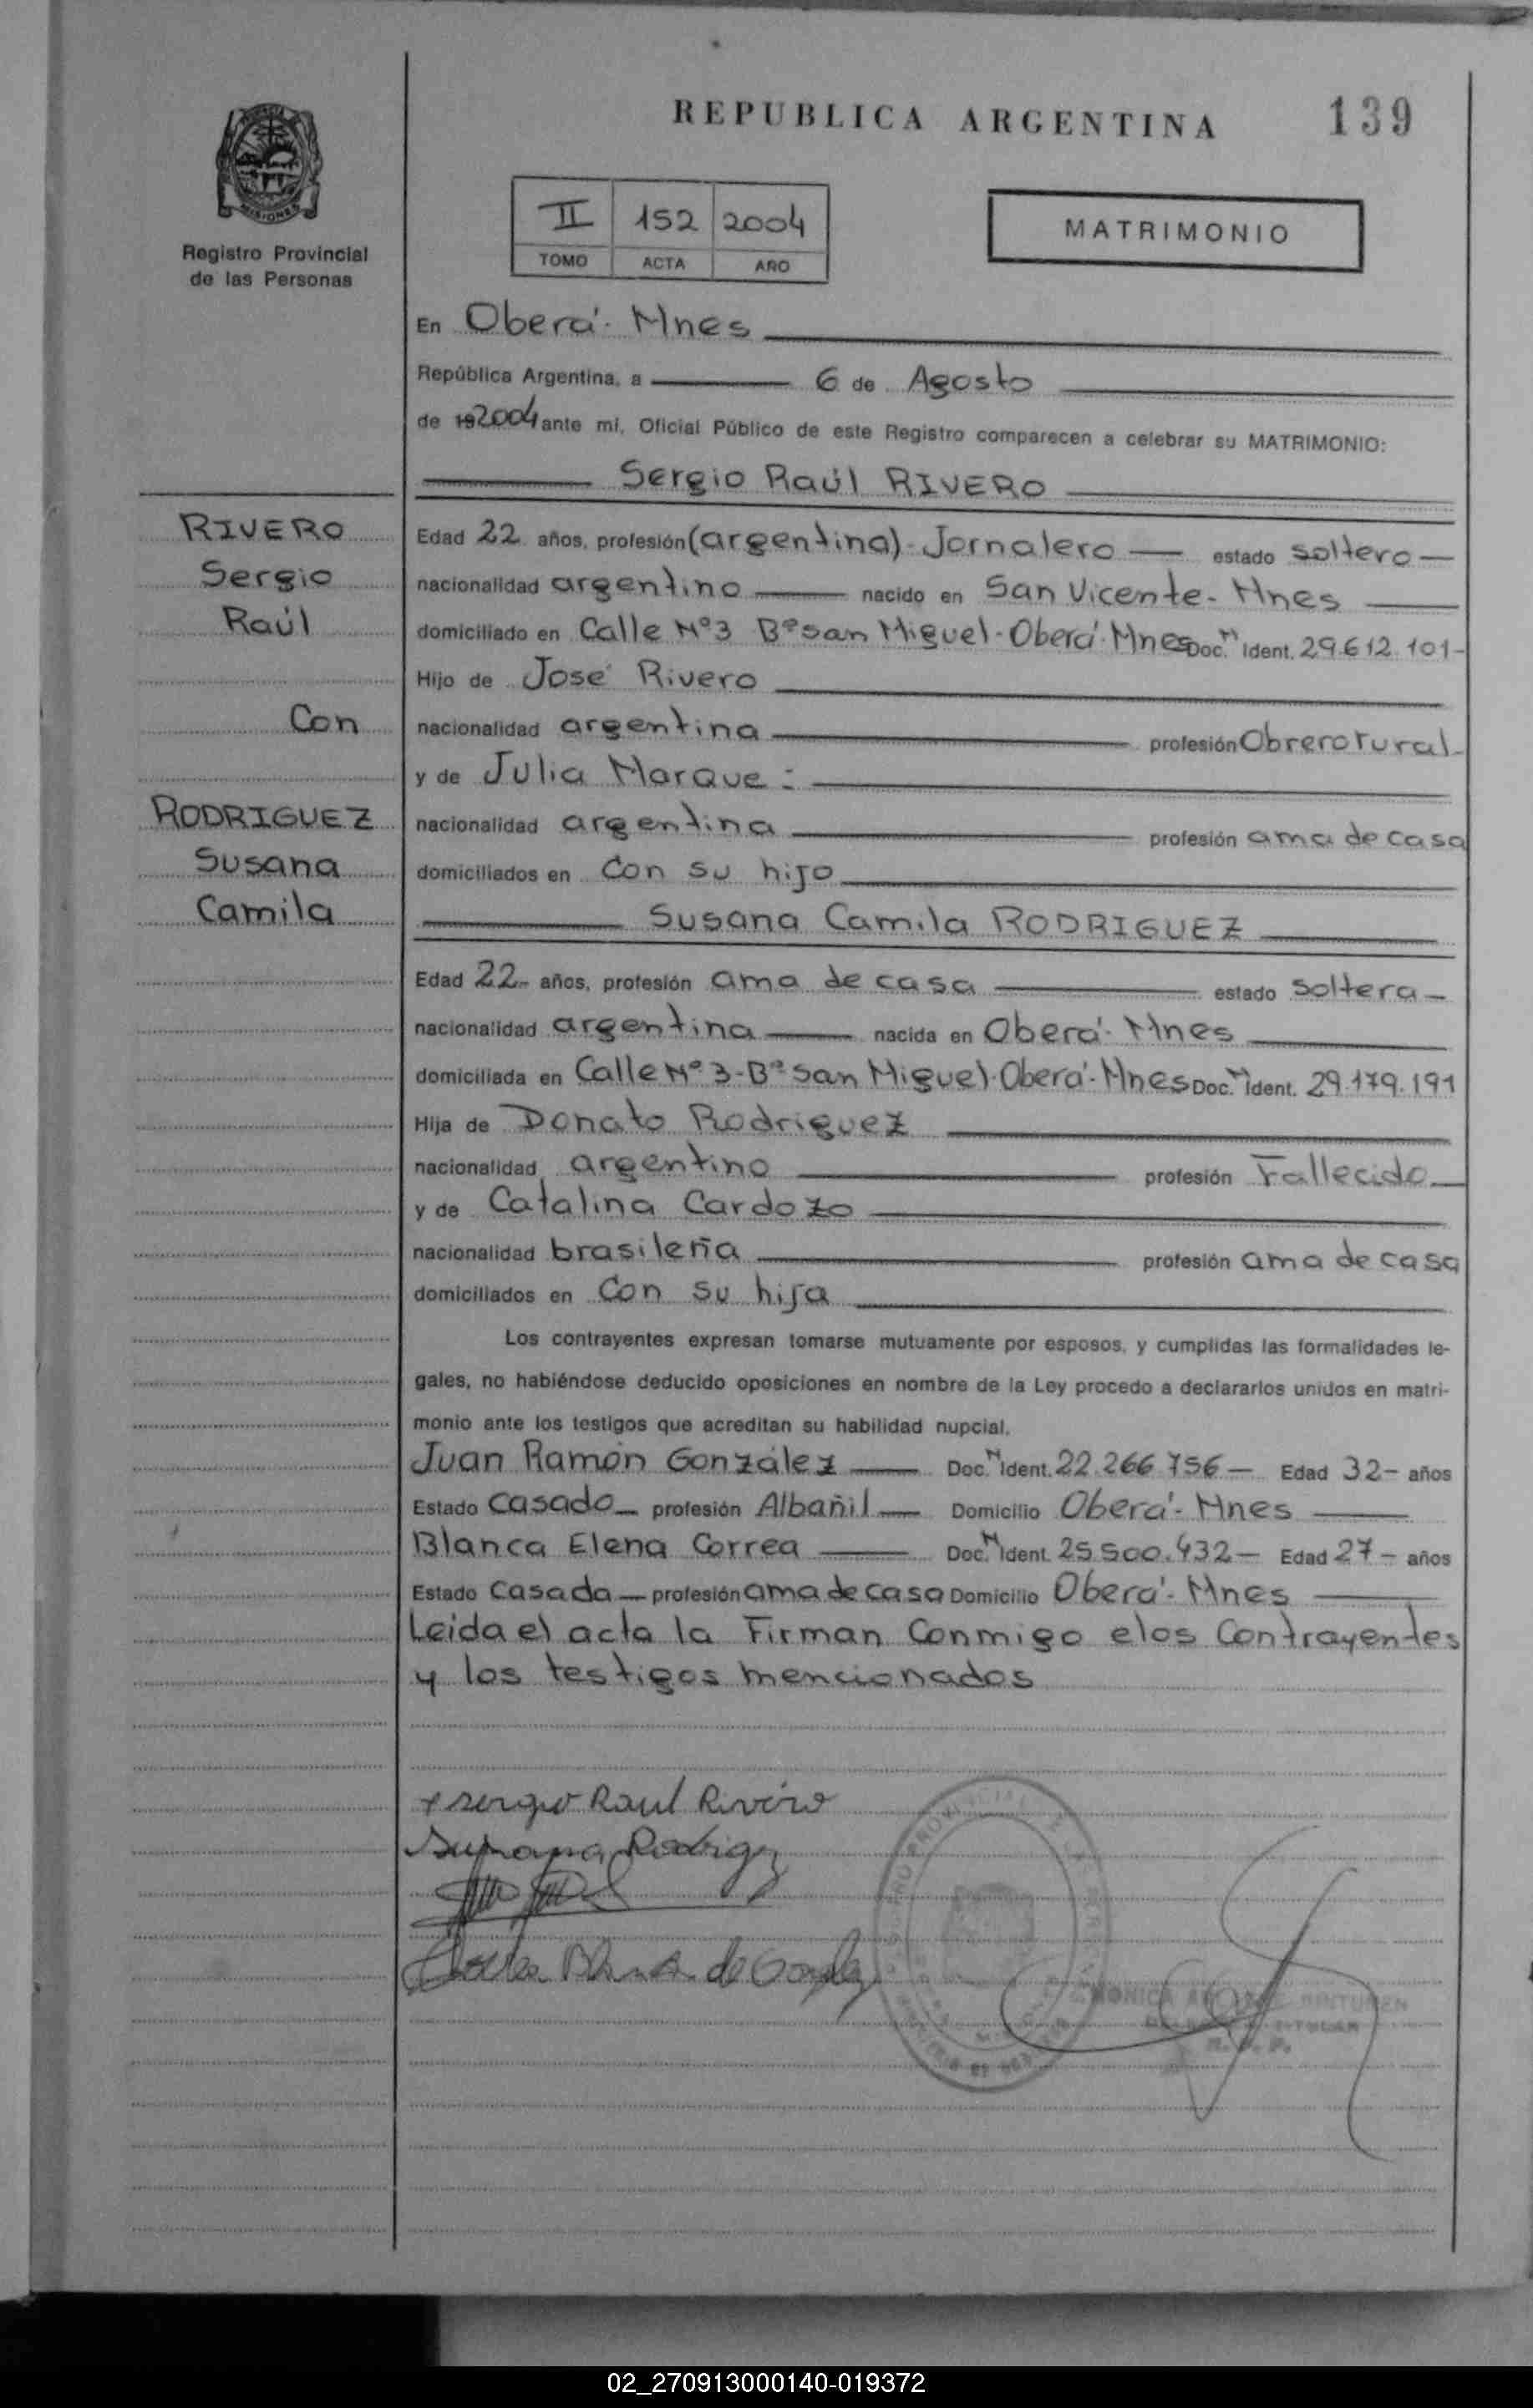 REPUBLICA ARGENTINA 139
MISIONES
Registro Provincial
de las Personas
II 152 2004
TOMO ACTA AÑO
MATRIMONIO
En Oberá - Mnes
República Argentina, a 6 de Agosto
de 192004 ante mí, Oficial Público de este Registro comparecen a celebrar su MATRIMONIO:
Sergio Raúl RIVERO
RIVERO
Sergio
Raúl
Con
RODRIGUEZ
Susana
Camila
Edad 22 años, profesión (argentina) - Jornalero — estado soltero —
nacionalidad argentino — nacido en San Vicente - Mnes
domiciliado en Calle Nº3 Bº San Miguel - Oberá - Mnes Doc. N Ident. 29.612.101-
Hijo de José Rivero
nacionalidad argentina — profesión Obrero rural -
y de Julia Marque :
nacionalidad argentina — profesión ama de casa
domiciliados en Con su hijo
Susana Camila RODRIGUEZ
Edad 22- años, profesión ama de casa — estado soltera -
nacionalidad argentina — nacida en Oberá - Mnes
domiciliada en Calle Nº 3 - Bº San Miguel - Oberá - Mnes Doc. N Ident. 29.179.191
Hija de Donato Rodriguez
nacionalidad argentino — profesión Fallecido
y de Catalina Cardozo
nacionalidad brasileña — profesión ama de casa
domiciliados en Con su hija
Los contrayentes expresan tomarse mutuamente por esposos, y cumplidas las formalidades le-
gales, no habiéndose deducido oposiciones en nombre de la Ley procedo a declararlos unidos en matri-
monio ante los testigos que acreditan su habilidad nupcial.
Juan Ramón González — Doc. N Ident. 22.266.756 — Edad 32- años
Estado Casado — profesión Albañil — Domicilio Oberá - Mnes
Blanca Elena Correa — Doc. N Ident. 25.500.432 — Edad 27 - años
Estado Casada — profesión ama de casa Domicilio Oberá - Mnes
Leida el acta la Firman Conmigo elos Contrayentes
y los testigos mencionados
Sergio Raul Rivero
Susana Rodrigez
MONICA
TITULAR
02_270913000140-019372